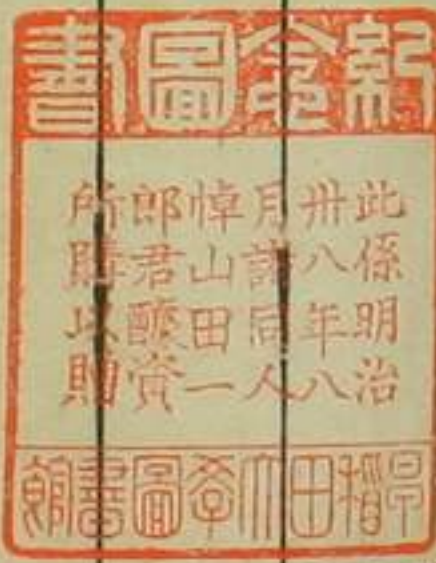 紀念圖書
此係明治
卅八年八
月諸同人
悼山田一
郎君醵資
所購以贈
早稻田大學圖書館